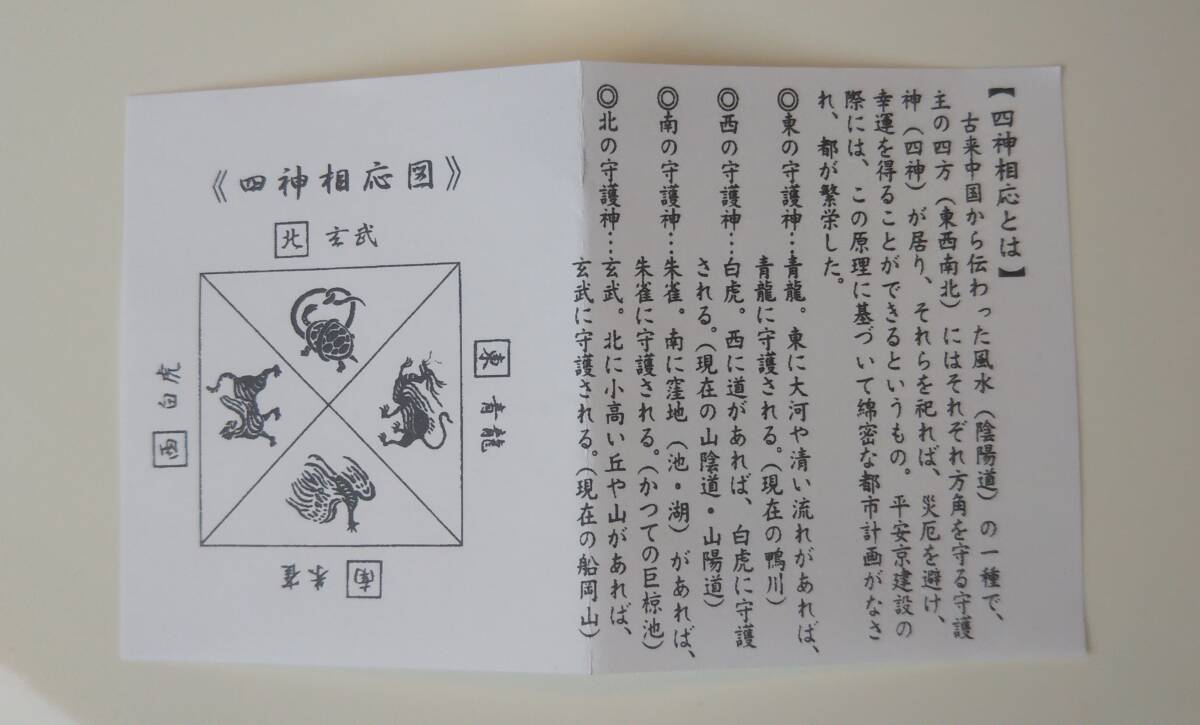 【四神相応とは】
古来中国から伝わった風水（陰陽道）の一種で、
主の四方（東西南北）にはそれぞれ方角を守る守護
神（四神）が居り、それらを祀れば、災厄を避け、
幸運を得ることができるというもの。平安京建設の
際には、この原理に基づいて綿密な都市計画がなさ
れ、都が繁栄した。
◎東の守護神…青龍。東に大河や清い流れがあれば、
青龍に守護される。（現在の鴨川）
◎西の守護神…白虎。西に道があれば、白虎に守護
される。（現在の山陰道・山陽道）
◎南の守護神…朱雀。南に窪地（池・湖）があれば、
朱雀に守護される。（かつての巨椋池）
◎北の守護神…玄武。北に小高い丘や山があれば、
玄武に守護される。（現在の船岡山）
《四神相応図》
北 玄武
東 青龍
西 白虎
南 朱雀